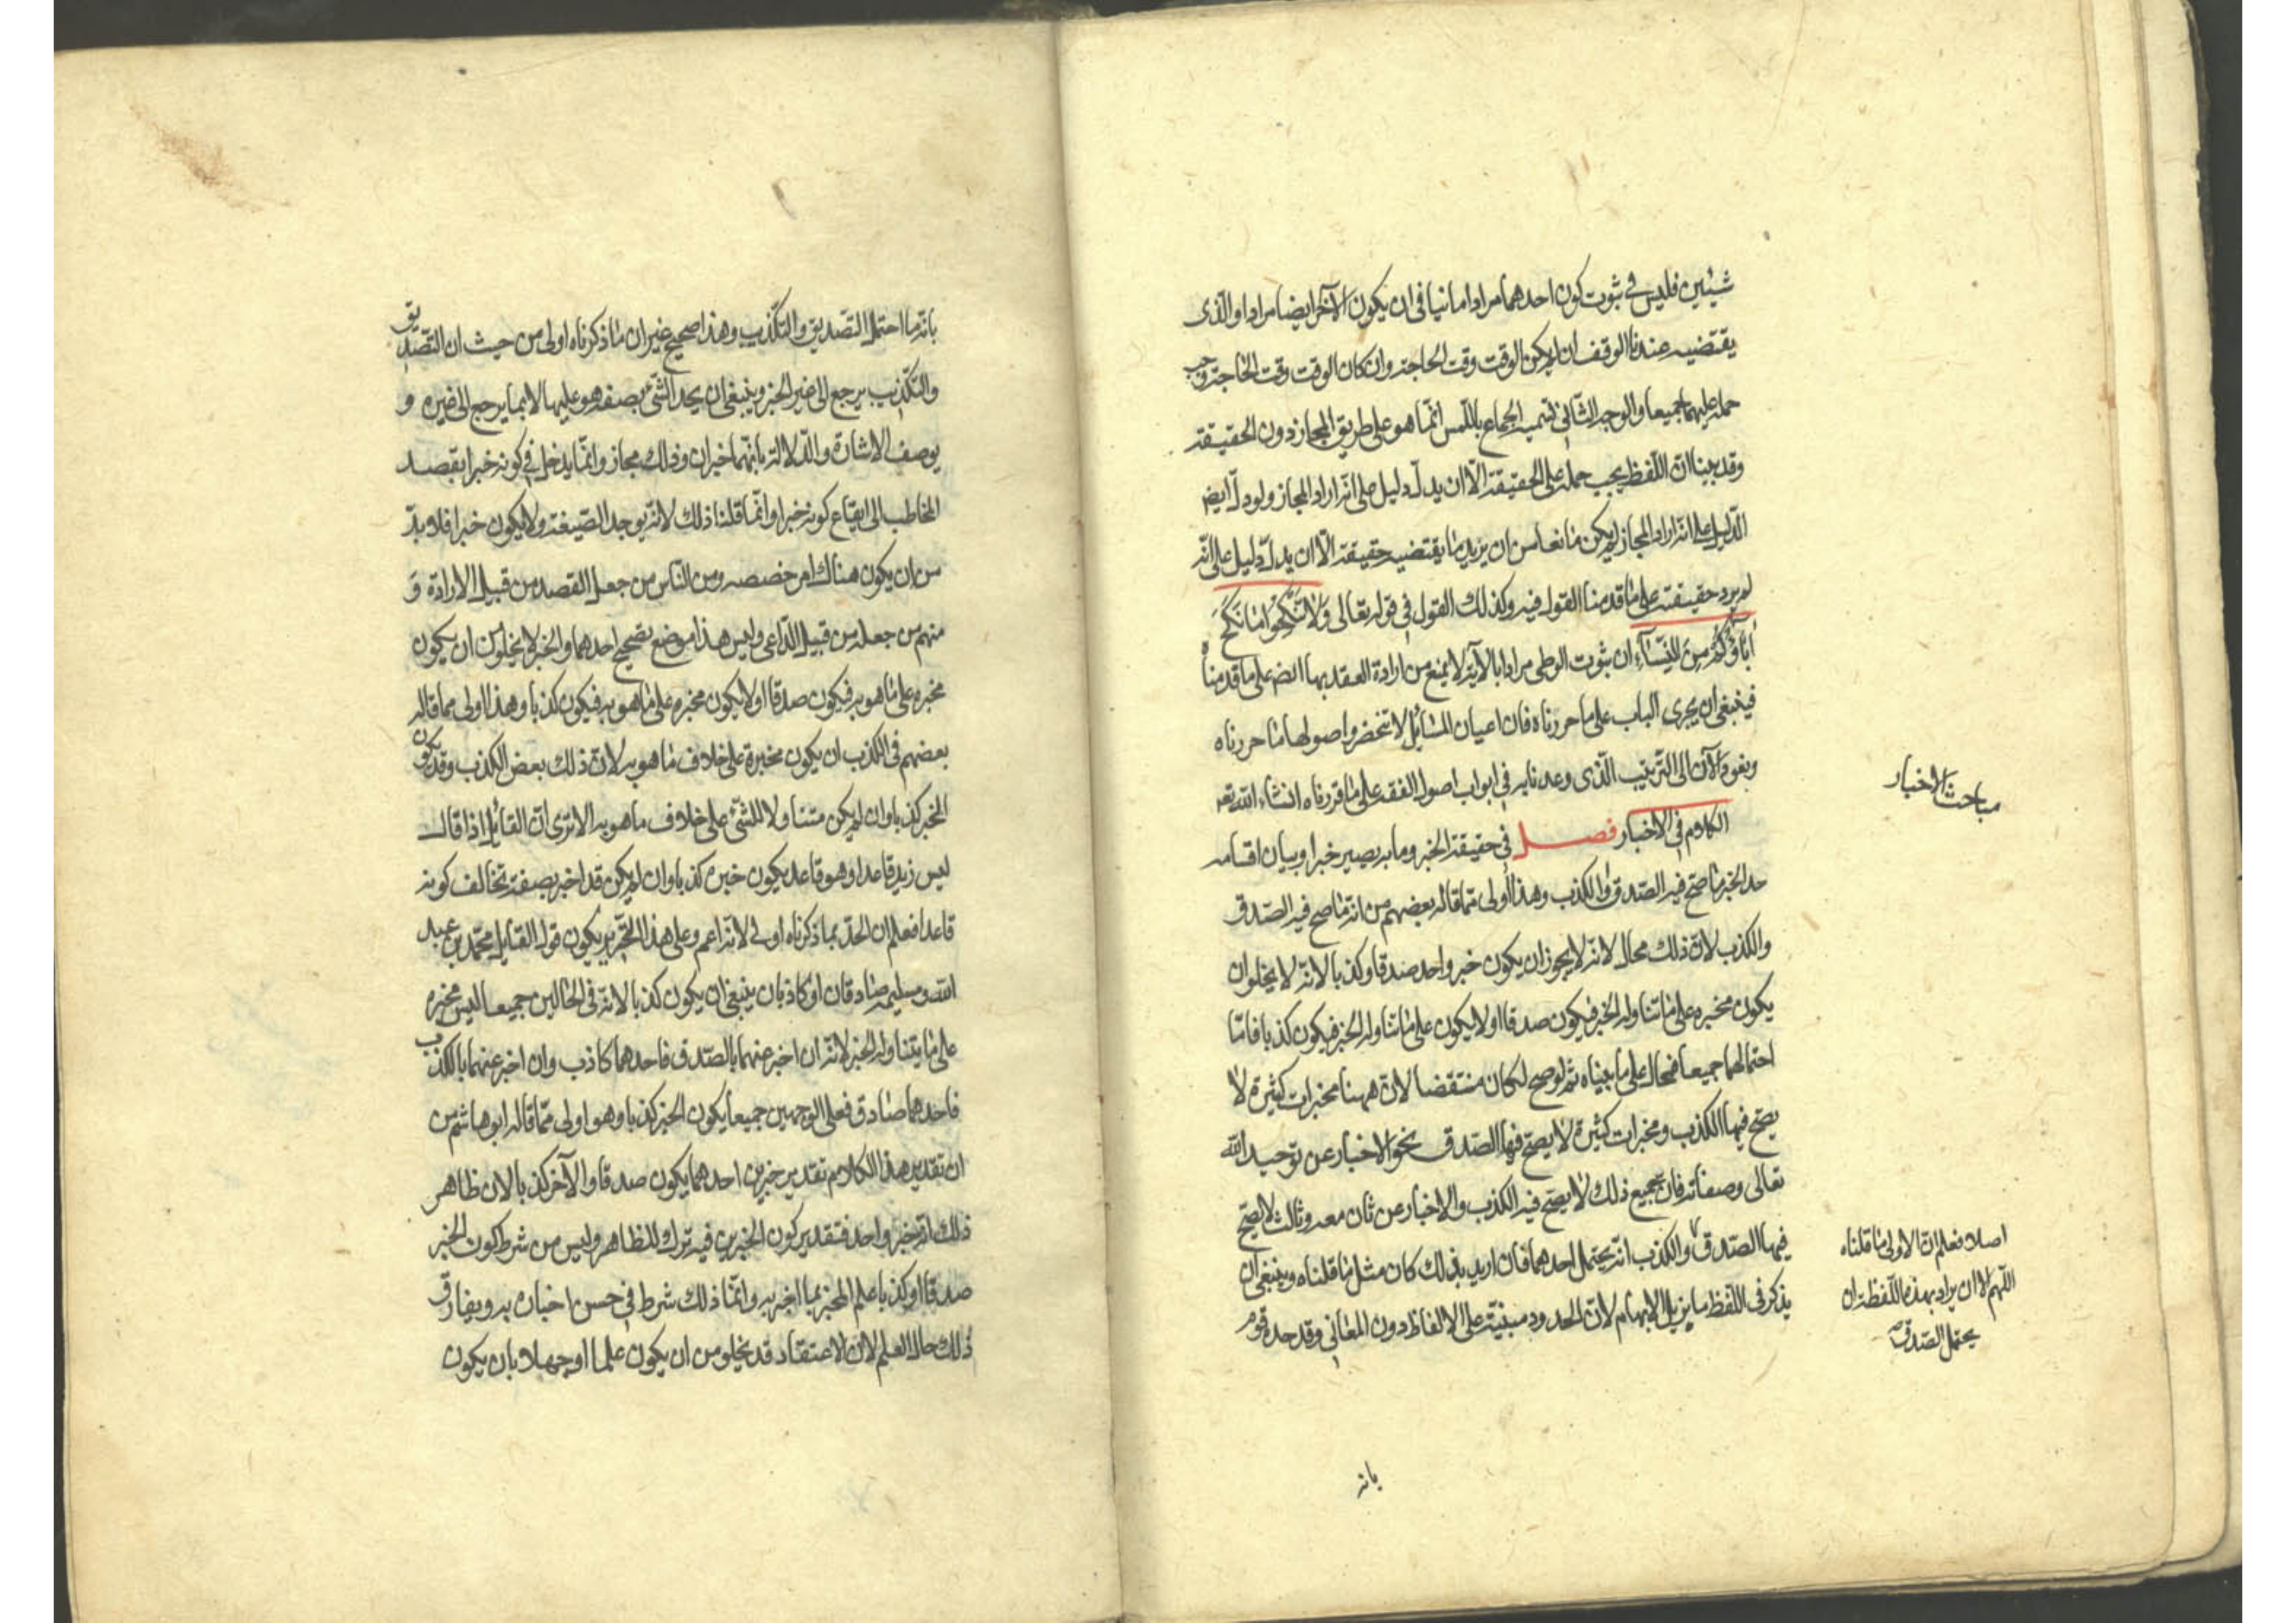 شيئين فليس في ثبوت كون احدهما مرادا ما ينافي ان يكون الآخر ايضا مرادا والذى
يقتضيه عندنا الوقف ان لم يكن الوقت وقت الحاجة وان كان الوقت وقت الحاجة وجب
حمله عليهما جميعا والوجه الثاني تسمية الجماع باللمس انّما هو على طريق المجاز دون الحقيقة
وقد بينا انّ اللّفظ يجب حمله على الحقيقة الّا ان يدلّ دليل على انّه اراد المجاز ولو دلّ ايض
الدّليل على انه اراد المجاز لم يكن مانعا من ان يريد ما يقتضيه حقيقته الّا ان يدلّ دليل على انّه
لم يرد حقيقته على ما قدمنا القول فيه وكذلك القول في قوله تعالى وَلا تَنْكِحُوا مٰا نَكَحَ
آبٰاؤُكُمْ مِنَ النِّسٰاءِ ان ثبوت الوطى مرادا بالآية لا يمنع من ارادة العقد بها ايضم على ما قدمناه
فينبغى ان يجرى الباب على ما حررناه فان اعيان المسائل لا تنحصر واصولها ما حررناه
ونعود الآن الى التّرتيب الّذى وعدنا به في ابواب اصول الفقه على ما قررناه انشاء الله تعه
مباحث الاخبار
الكلام في الاخبار فصل في حقيقة الخبر وما به يصير خبرا وبيان اقسامه
حد الخبر ما صحّ فيه الصّدق او الكذب وهذا اولى ممّا قاله بعضهم من انّه ما صح فيه الصّدق
والكذب لانّ ذلك محال لانّه لا يجوز ان يكون خبر واحد صدقا وكذبا لانّه لا يخلو ان
يكون مخبره على ما تناوله الخبر فيكون صدقا او لا يكون على ما تناوله الخبر فيكون كذبا فامّا
احتمالهما جميعا فمحال على ما بيناه ثم لو صح لكان منتقضا لانّ ههنا مخبرات كثيرة لا
يصحّ فيها الكذب ومخبرات كثيرة لا يصحّ فيها الصّدق نحو الاخبار عن توحيد الله
تعالى وصفاته فان جميع ذلك لا يصحّ فيه الكذب والاخبار عن ثان معه وثالث لا يصحّ
فيها الصّدق والكذب انّه يحتمل احدهما فان اريد بذلك كان مثل ما قلناه وينبغى ان
يذكر في اللّفظ ما يزيل الابهام لانّ الحدود مبنيّة على الالفاظ دون المعانى وقد حده قوم
اصلا فعلم انّ الاولى ما قلناه
اللّهم الا ان يراد بهذه اللّفظة ان
يحتمل الصّدق
بانه
بانّه ما احتمل التّصديق والتّكذيب وهذا صحيح غير ان ما ذكرناه اولى من حيث ان التّصديق
والتّكذيب يرجع الى غير الخبر وينبغى ان يحد الشّىء بصفة هو عليها لا بما يرجع الى غيره و
يوصف الاشارة والدّلالة بانّهما خبران وذلك مجاز وانّما يدخل في كونه خبرا بقصد
المخاطب الى ايقاع كونه خبرا وانّما قلنا ذلك لانّه يوجد الصّيغة ولا يكون خبرا فلا بدّ
من ان يكون هناك امر خصصه ومن النّاس من جعل القصد من قبيل الارادة و
منهم من جعله من قبيل الدّاعى وليس هذا موضع تصحيح احدهما والخبر لا يخلو من ان يكون
مخبره على ما هو به فيكون صدقا او لا يكون مخبره على ما هو به فيكون كذبا وهذا اولى مما قاله
بعضهم في الكذب ان يكون مخبره على خلاف ما هو به لانّ ذلك بعض الكذب وقد يكون
الخبر كذبا وان لم يكن متناولا للشّىء على خلاف ما هو به الا ترى انّ القائل اذا قال
ليس زيد قاعدا وهو قاعد يكون خبره كذبا وان لم يكن قد اخبر بصفة تخالف كونه
قاعدا فعلم ان الحدّ بما ذكرناه اولى لانّه اعم وعلى هذا التّحرير يكون قول القايل محمّد بن عبد
الله ومسيلمة صادقان او كاذبان ينبغى ان يكون كذبا لانّه في الحالين جميعا ليس مخبره
على ما يتناوله الخبر لانّه ان اخبر عنهما بالصّدق فاحدهما كاذب وان اخبر عنهما بالكذب
فاحدهما صادق فعلى الوجهين جميعا يكون الخبر كذبا وهو اولى ممّا قاله ابو هاشم من
ان تقدير هذا الكلام تقدير خبرين احدهما يكون صدقا والآخر كذبا لان ظاهر
ذلك انّه خبر واحد فتقدير كون الخبرين فيه ترك للظاهر وليس من شرط كون الخبر
صدقا او كذبا علم المخبر بما اخبر به وانّما ذلك شرط في حسن اخباره به ويفارق
ذلك حال العلم لان الاعتقاد قد يخلو من ان يكون علما او جهلا بان يكون